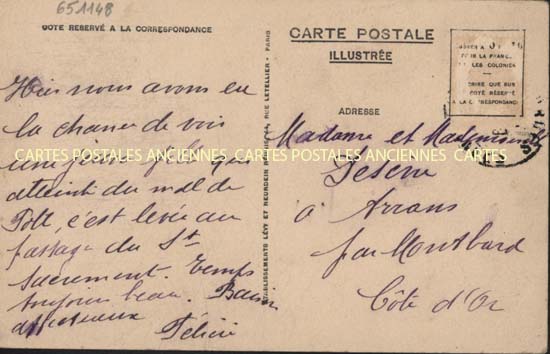 651148
COTE RESERVÉ A LA CORRESPONDANCE
CARTE POSTALE
ILLUSTRÉE
ADRESSE
Hier nous avons eu
la chance de voir
une jeune fille qui
atteint du mal de
Pott, c'est levée au
passage du St
Sacrement. Temps
toujours beau. Baisers
affectueux
Félicie
ÉTABLISSEMENTS LÉVY ET NEURDEIN RÉUNIS, RUE LETELLIER - PARIS
POUR LA FRANCE
LES COLONIES
COTÉ RÉSERVÉ
A LA CORRESPONDANCE
Madame et Mademoiselle
à Arrans
par Montbard
Côte d'Or
CARTES POSTALES ANCIENNES CARTES POSTALES ANCIENNES CARTES